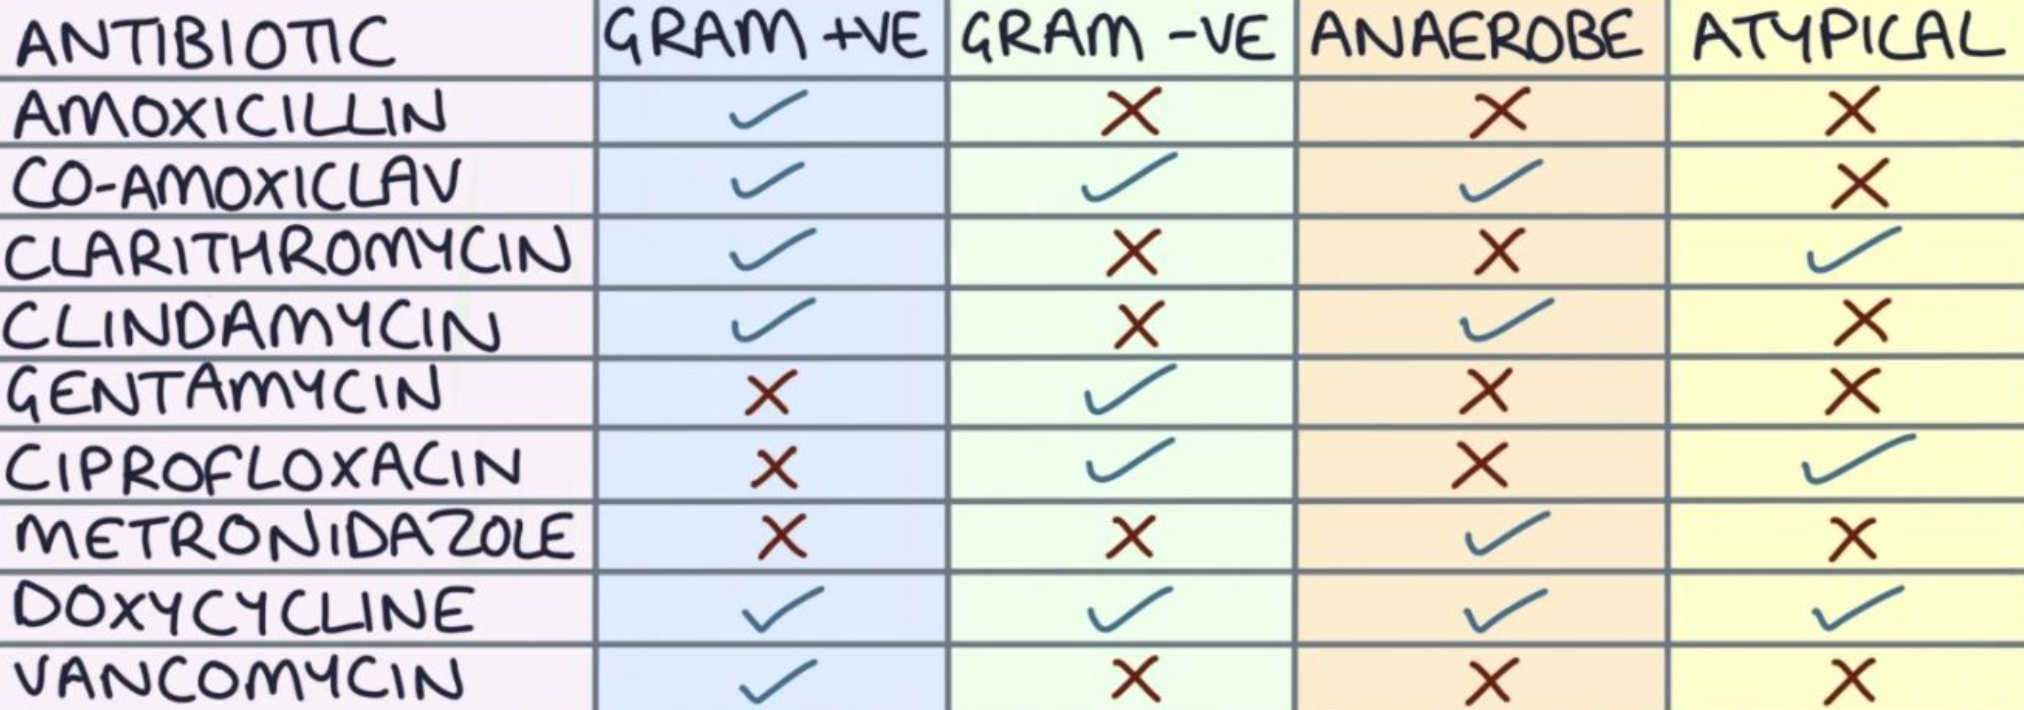 ANTIBIOTIC GRAM +VE GRAM -VE ANAEROBE ATYPICAL
AMOXICILLIN ✓ ✗ ✗ ✗
CO-AMOXICLAV ✓ ✓ ✓ ✗
CLARITHROMYCIN ✓ ✗ ✗ ✓
CLINDAMYCIN ✓ ✗ ✓ ✗
GENTAMYCIN ✗ ✓ ✗ ✗
CIPROFLOXACIN ✗ ✓ ✗ ✓
METRONIDAZOLE ✗ ✗ ✓ ✗
DOXYCYCLINE ✓ ✓ ✓ ✓
VANCOMYCIN ✓ ✗ ✗ ✗